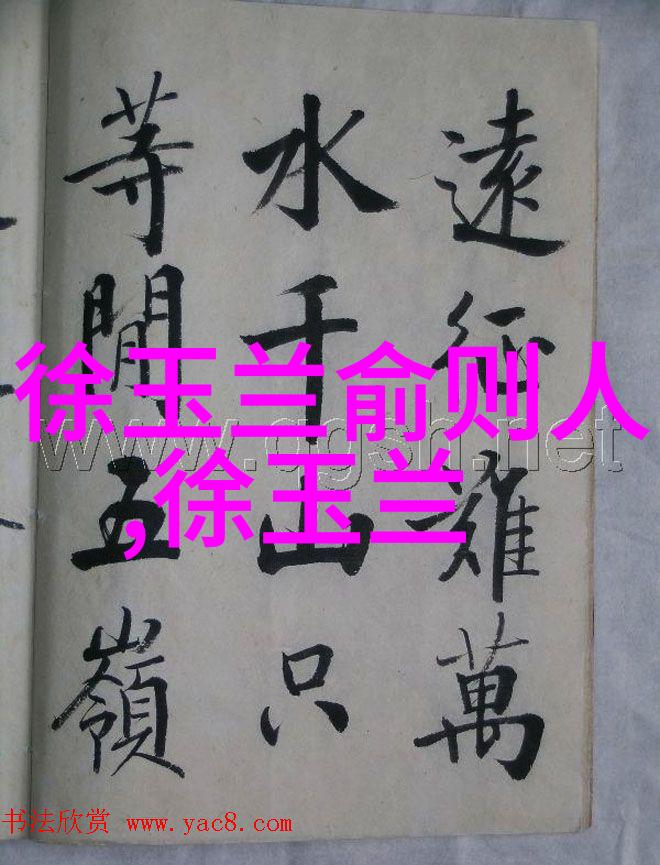 遠征難萬
水千山只
等閒五嶺
徐玉兰俞则人
,徐玉兰
www.qgsh.net
书法欣赏 www.yac8.com